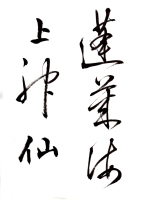 蓬莱海
上神仙